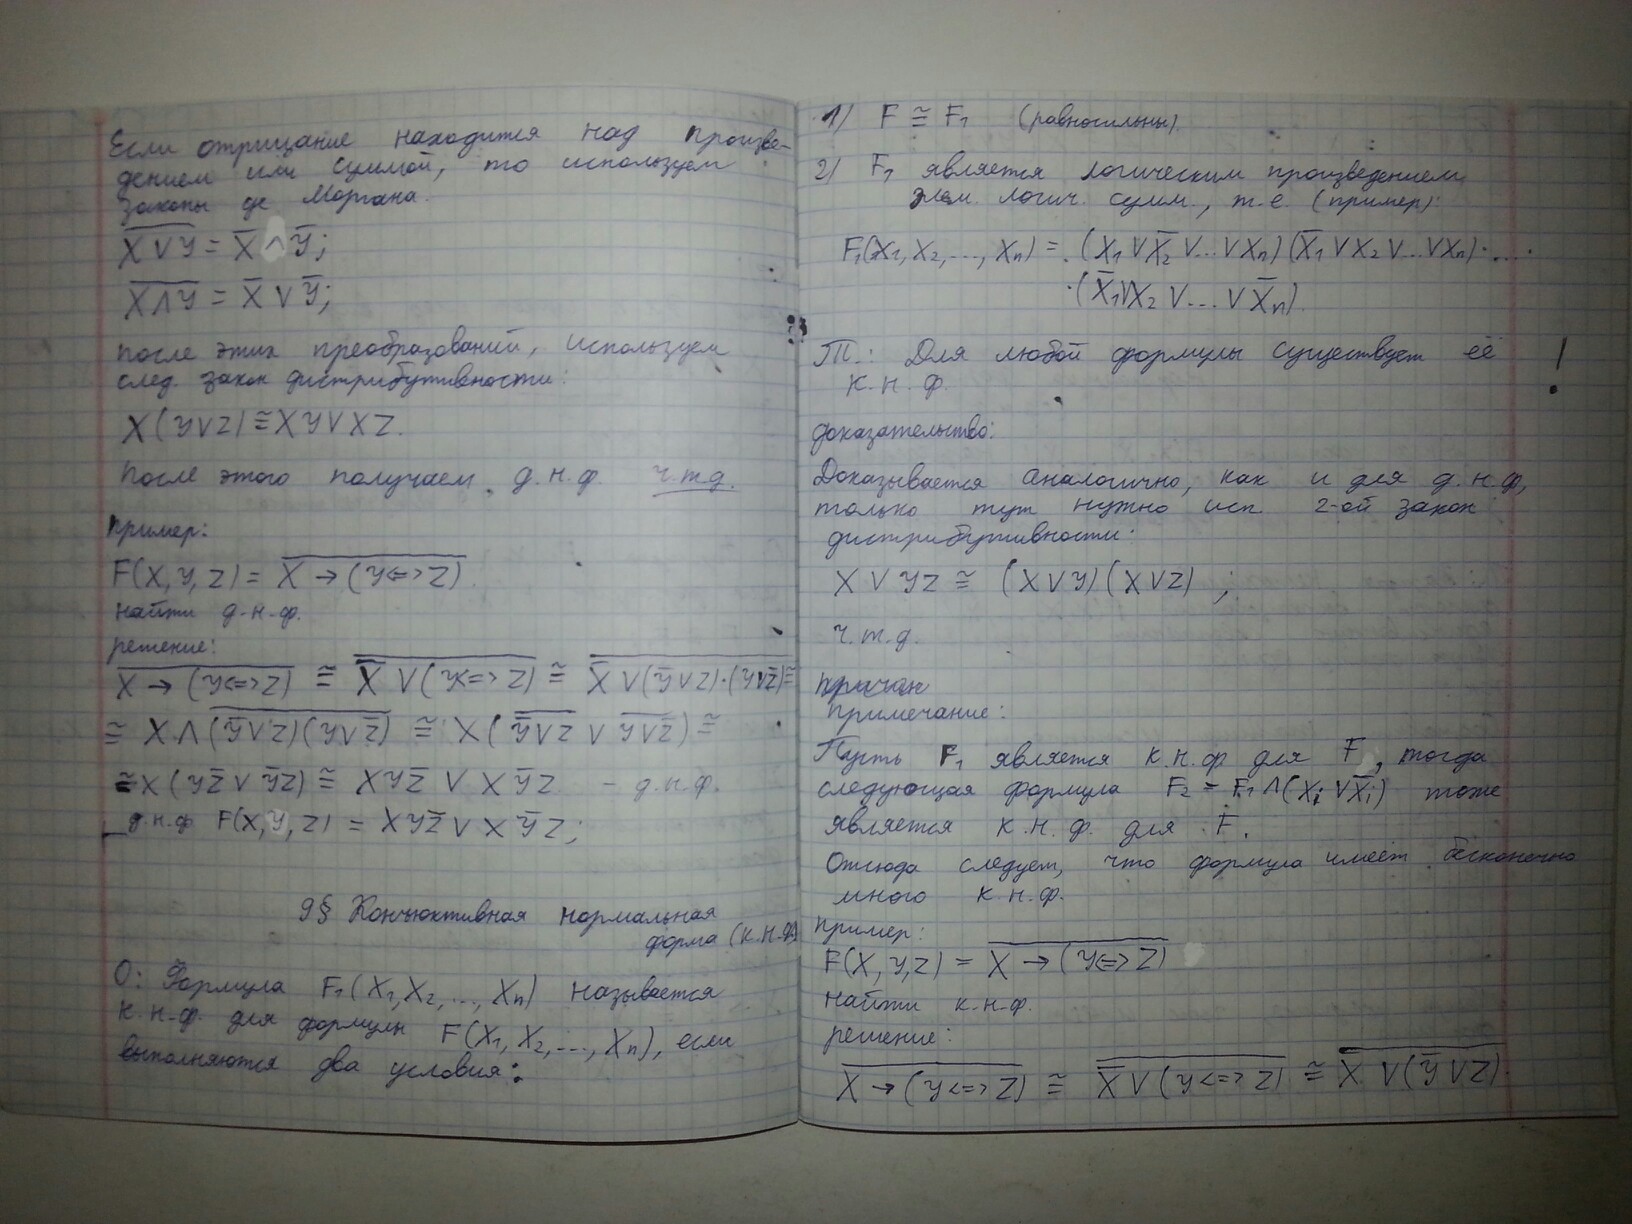 Если отрицание находится над произве-
дением или суммой, то используем
законы де Моргана.
X̅ ̅V̅ ̅Y̅ = X̅ ∧ Y̅;
X̅ ̅Λ̅ ̅Y̅ = X̅ V Y̅;
после этих преобразований, используем
след. закон дистрибутивности:
X(YVZ) ≅ XYVXZ.
После этого получаем д.н.ф. ч.т.д.
пример:
F(X,Y,Z) = X̅ ̅→̅ ̅(̅Y̅<̅=̅>̅Z̅)̅
найти д.н.ф.
решение:
X̅ ̅→̅ ̅(̅Y̅<̅=̅>̅Z̅)̅ ≅ \overline{X̅ V (Y<=>Z)} ≅ \overline{X̅ V (Y̅VZ)·(YVZ̅)} ≅
≅ X Λ \overline{(Y̅VZ)(YVZ̅)} ≅ X(\overline{Y̅VZ} V \overline{YVZ̅}) ≅
≅ X(YZ̅ V Y̅Z) ≅ XYZ̅ V XY̅Z – д.н.ф.
д.н.ф F(X,Y,Z) = XYZ̅ V XY̅Z;
9§ Конъюктивная нормальная
форма (К.Н.Ф)
О: Формула F₁(X₁,X₂,...,Xn) называется
к.н.ф. для формулы F(X₁,X₂,...,Xn), если
выполняются два условия:
1) F ≅ F₁ (равносильны).
2) F₁ является логическим произведением
элем. логич. сумм., т.е. (пример):
F₁(X₁,X₂,...,Xn) = (X₁VX̅₂V...VXn)(X̅₁VX₂V...VXn)·...
·(X̅₁VX₂V...VX̅n).
Т.: Для любой формулы существует её !
к.н.ф.
доказательство:
Доказывается аналогично, как и для д.н.ф,
только тут нужно исп. 2-ой закон
дистрибутивности:
X V YZ ≅ (XVY)(XVZ) ;
ч.т.д.
примечание:
Пусть F₁ является к.н.ф для F, тогда
следующая формула F₂ = F₁Λ(Xi V X̅i) тоже
является к.н.ф. для F.
Отсюда следует, что формула имеет бесконечно
много к.н.ф.
пример:
F(X,Y,Z) = \overline{X → (Y<=>Z)}
найти к.н.ф.
решение:
\overline{X → (Y<=>Z)} ≅ \overline{X̅ V (Y<=>Z)} ≅ \overline{X̅ V (Y̅VZ)·